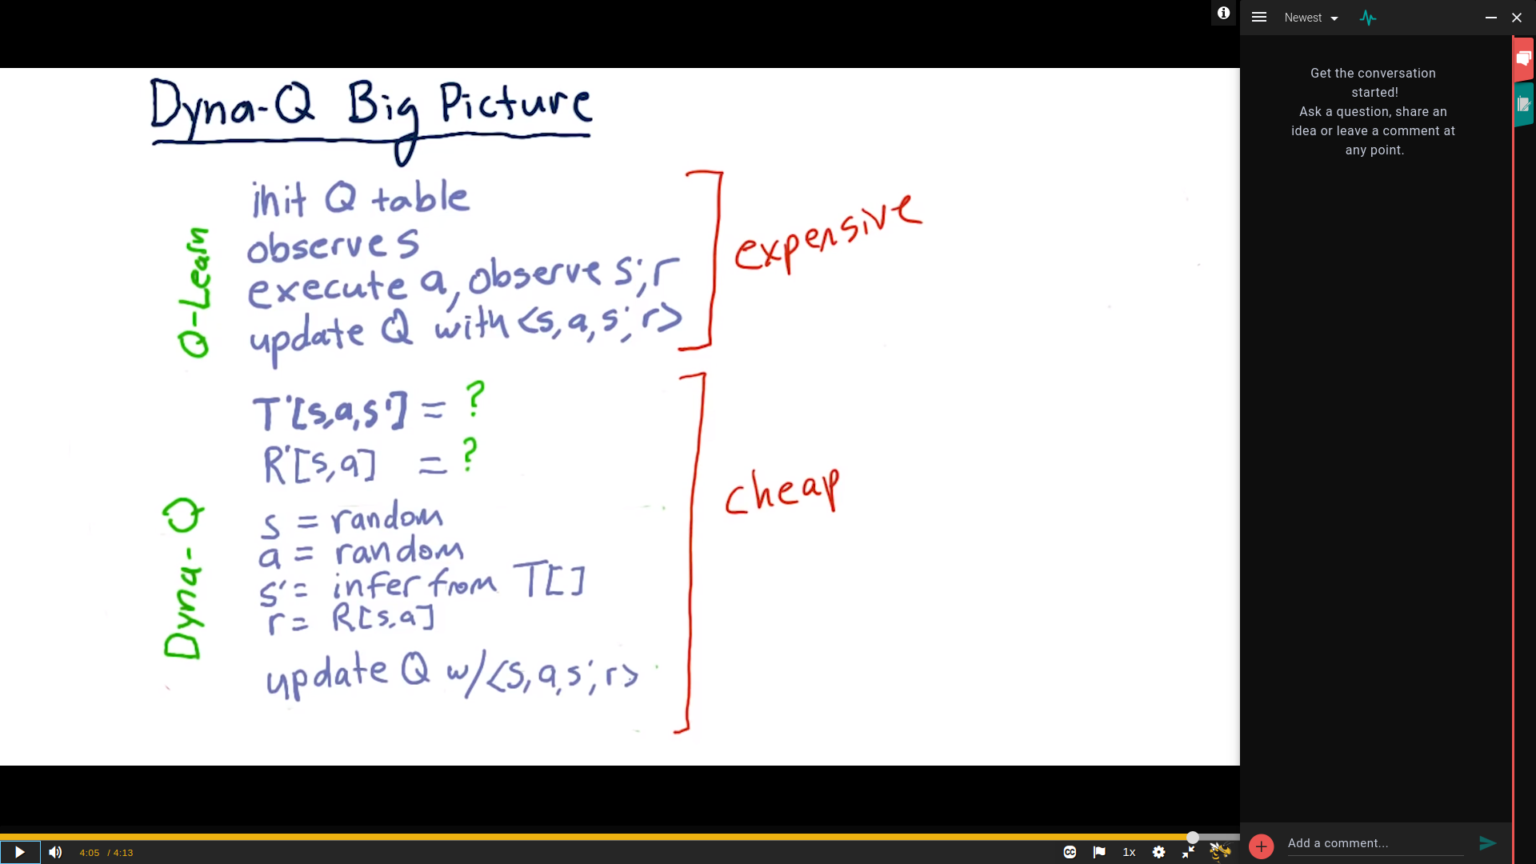 Dyna-Q Big Picture
Q-Learn
init Q table
observe s
execute a, observe s', r
update Q with <s, a, s', r>
expensive
Dyna-Q
T'[s,a,s'] = ?
R'[s,a] = ?
s = random
a = random
s' = infer from T[]
r = R[s,a]
update Q w/<s, a, s', r>
cheap
4:05 / 4:13
CC
1x
Newest
Get the conversation
started!
Ask a question, share an
idea or leave a comment at
any point.
Add a comment...